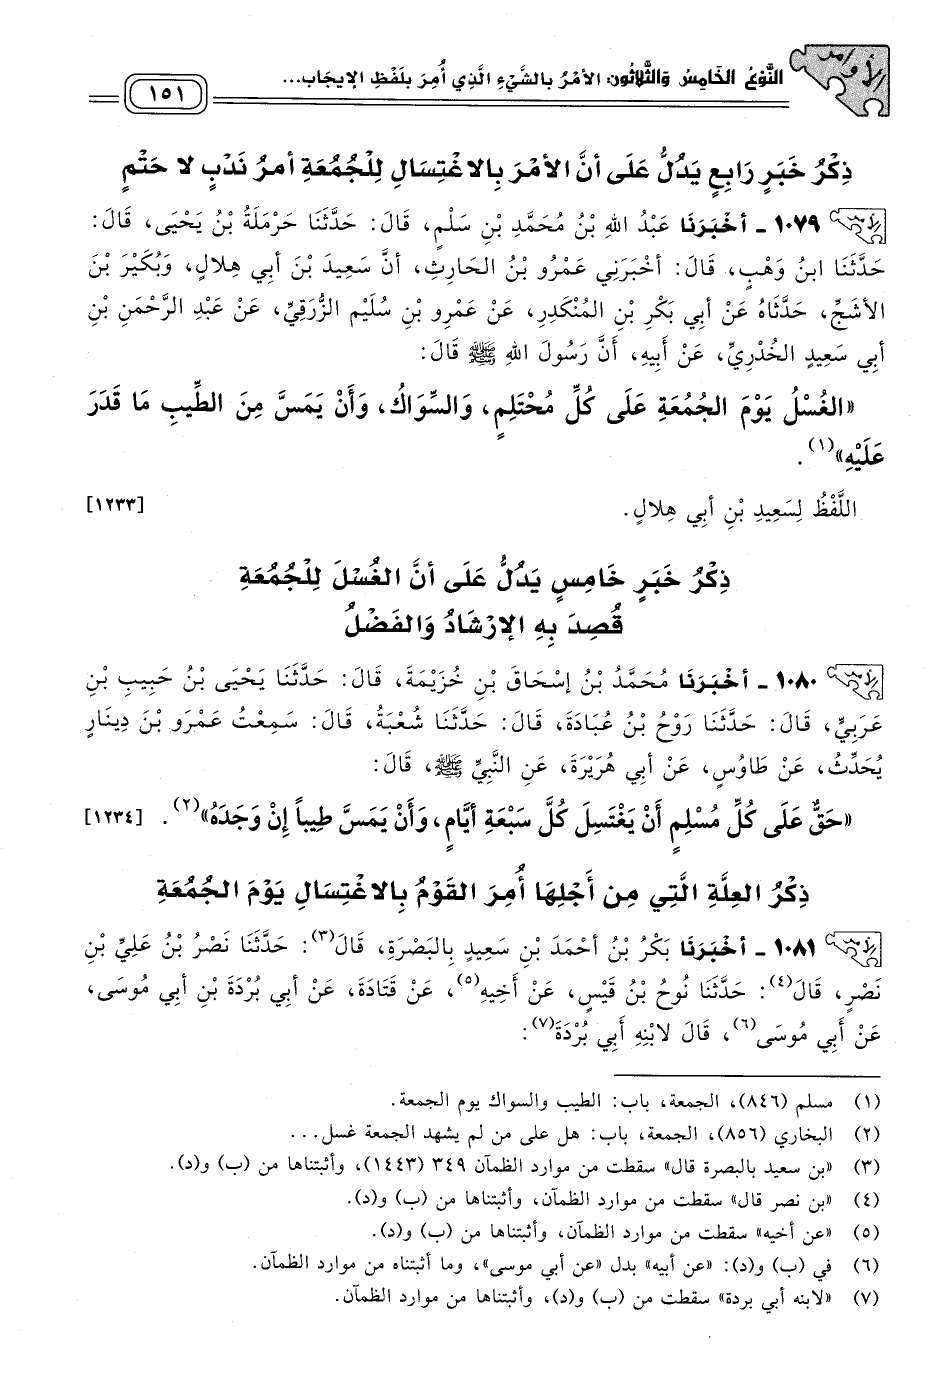 الأوامر
النَّوْعُ الخَامِسُ وَالثَّلاثُون: الأمْرُ بالشَّيْءِ الَّذِي أُمِرَ بلَفْظِ الإيجَاب...
١٥١
ذِكْرُ خَبَرٍ رَابِعٍ يَدُلُّ عَلَى أنَّ الأمْرَ بِالاغْتِسَالِ لِلْجُمُعَةِ أمرُ نَدْبٍ لا حَتْمٍ
١٠٧٩ ـ أخْبَرَنَا عَبْدُ اللهِ بْنُ مُحَمَّدِ بْنِ سَلْمٍ، قَالَ: حَدَّثَنَا حَرْمَلَةُ بْنُ يَحْيَى، قَالَ:
حَدَّثَنَا ابنُ وَهْبٍ، قَالَ: أخْبَرَنِي عَمْرُو بْنُ الحَارِثِ، أنَّ سَعِيدَ بْنَ أبِي هِلالٍ، وَبُكَيْرَ بْنَ
الأشَجِّ، حَدَّثَاهُ عَنْ أبِي بَكْرِ بْنِ المُنْكَدِرِ، عَنْ عَمْرِو بْنِ سُلَيْمٍ الزُّرَقِيِّ، عَنْ عَبْدِ الرَّحْمَنِ بْنِ
أبِي سَعِيدٍ الخُدْرِيِّ، عَنْ أَبِيهِ، أنَّ رَسُولَ اللهِ ﷺ قَالَ:
«الغُسْلُ يَوْمَ الجُمُعَةِ عَلَى كُلِّ مُحْتَلِمٍ، وَالسِّوَاكُ، وَأَنْ يَمَسَّ مِنَ الطِّيبِ مَا قَدَرَ
عَلَيْهِ»(١).
اللَّفْظُ لِسَعِيدِ بْنِ أبِي هِلالٍ. [١٢٣٣]
ذِكْرُ خَبَرٍ خَامِسٍ يَدُلُّ عَلَى أنَّ الغُسْلَ لِلْجُمُعَةِ
قُصِدَ بِهِ الإرْشَادُ وَالفَضْلُ
١٠٨٠ ـ أخْبَرَنَا مُحَمَّدُ بْنُ إسْحَاقَ بْنِ خُزَيْمَةَ، قَالَ: حَدَّثَنَا يَحْيَى بْنُ حَبِيبِ بْنِ
عَرَبِيٍّ، قَالَ: حَدَّثَنَا رَوْحُ بْنُ عُبَادَةَ، قَالَ: حَدَّثَنَا شُعْبَةُ، قَالَ: سَمِعْتُ عَمْرَو بْنَ دِينَارٍ
يُحَدِّثُ، عَنْ طَاوُسٍ، عَنْ أبِي هُرَيْرَةَ، عَنِ النَّبِيِّ ﷺ، قَالَ:
«حَقٌّ عَلَى كُلِّ مُسْلِمٍ أَنْ يَغْتَسِلَ كُلَّ سَبْعَةِ أيَّامٍ، وَأَنْ يَمَسَّ طِيباً إنْ وَجَدَهُ»(٢). [١٢٣٤]
ذِكْرُ العِلَّةِ الَّتِي مِن أَجْلِهَا أُمِرَ القَوْمُ بِالاغْتِسَالِ يَوْمَ الجُمُعَةِ
١٠٨١ ـ أخْبَرَنَا بَكْرُ بْنُ أحْمَدَ بْنِ سَعِيدٍ بِالبَصْرَةِ، قَالَ(٣): حَدَّثَنَا نَصْرُ بْنُ عَلِيِّ بْنِ
نَصْرٍ، قَالَ(٤): حَدَّثَنَا نُوحُ بْنُ قَيْسٍ، عَنْ أَخِيهِ(٥)، عَنْ قَتَادَةَ، عَنْ أبِي بُرْدَةَ بْنِ أبِي مُوسَى،
عَنْ أَبِي مُوسَى(٦)، قَالَ لابْنِهِ أبِي بُرْدَةَ(٧):
(١) مسلم (٨٤٦)، الجمعة، باب: الطيب والسواك يوم الجمعة.
(٢) البخاري (٨٥٦)، الجمعة، باب: هل على من لم يشهد الجمعة غسل...
(٣) «بن سعيد بالبصرة قال» سقطت من موارد الظمآن ٣٤٩ (١٤٤٣)، وأثبتناها من (ب) و(د).
(٤) «بن نصر قال» سقطت من موارد الظمآن، وأثبتناها من (ب) و(د).
(٥) «عن أخيه» سقطت من موارد الظمآن، وأثبتناها من (ب) و(د).
(٦) في (ب) و(د): «عن أبيه» بدل «عن أبي موسى»، وما أثبتناه من موارد الظمآن.
(٧) «لابنه أبي بردة» سقطت من (ب) و(د)، وأثبتناها من موارد الظمآن.